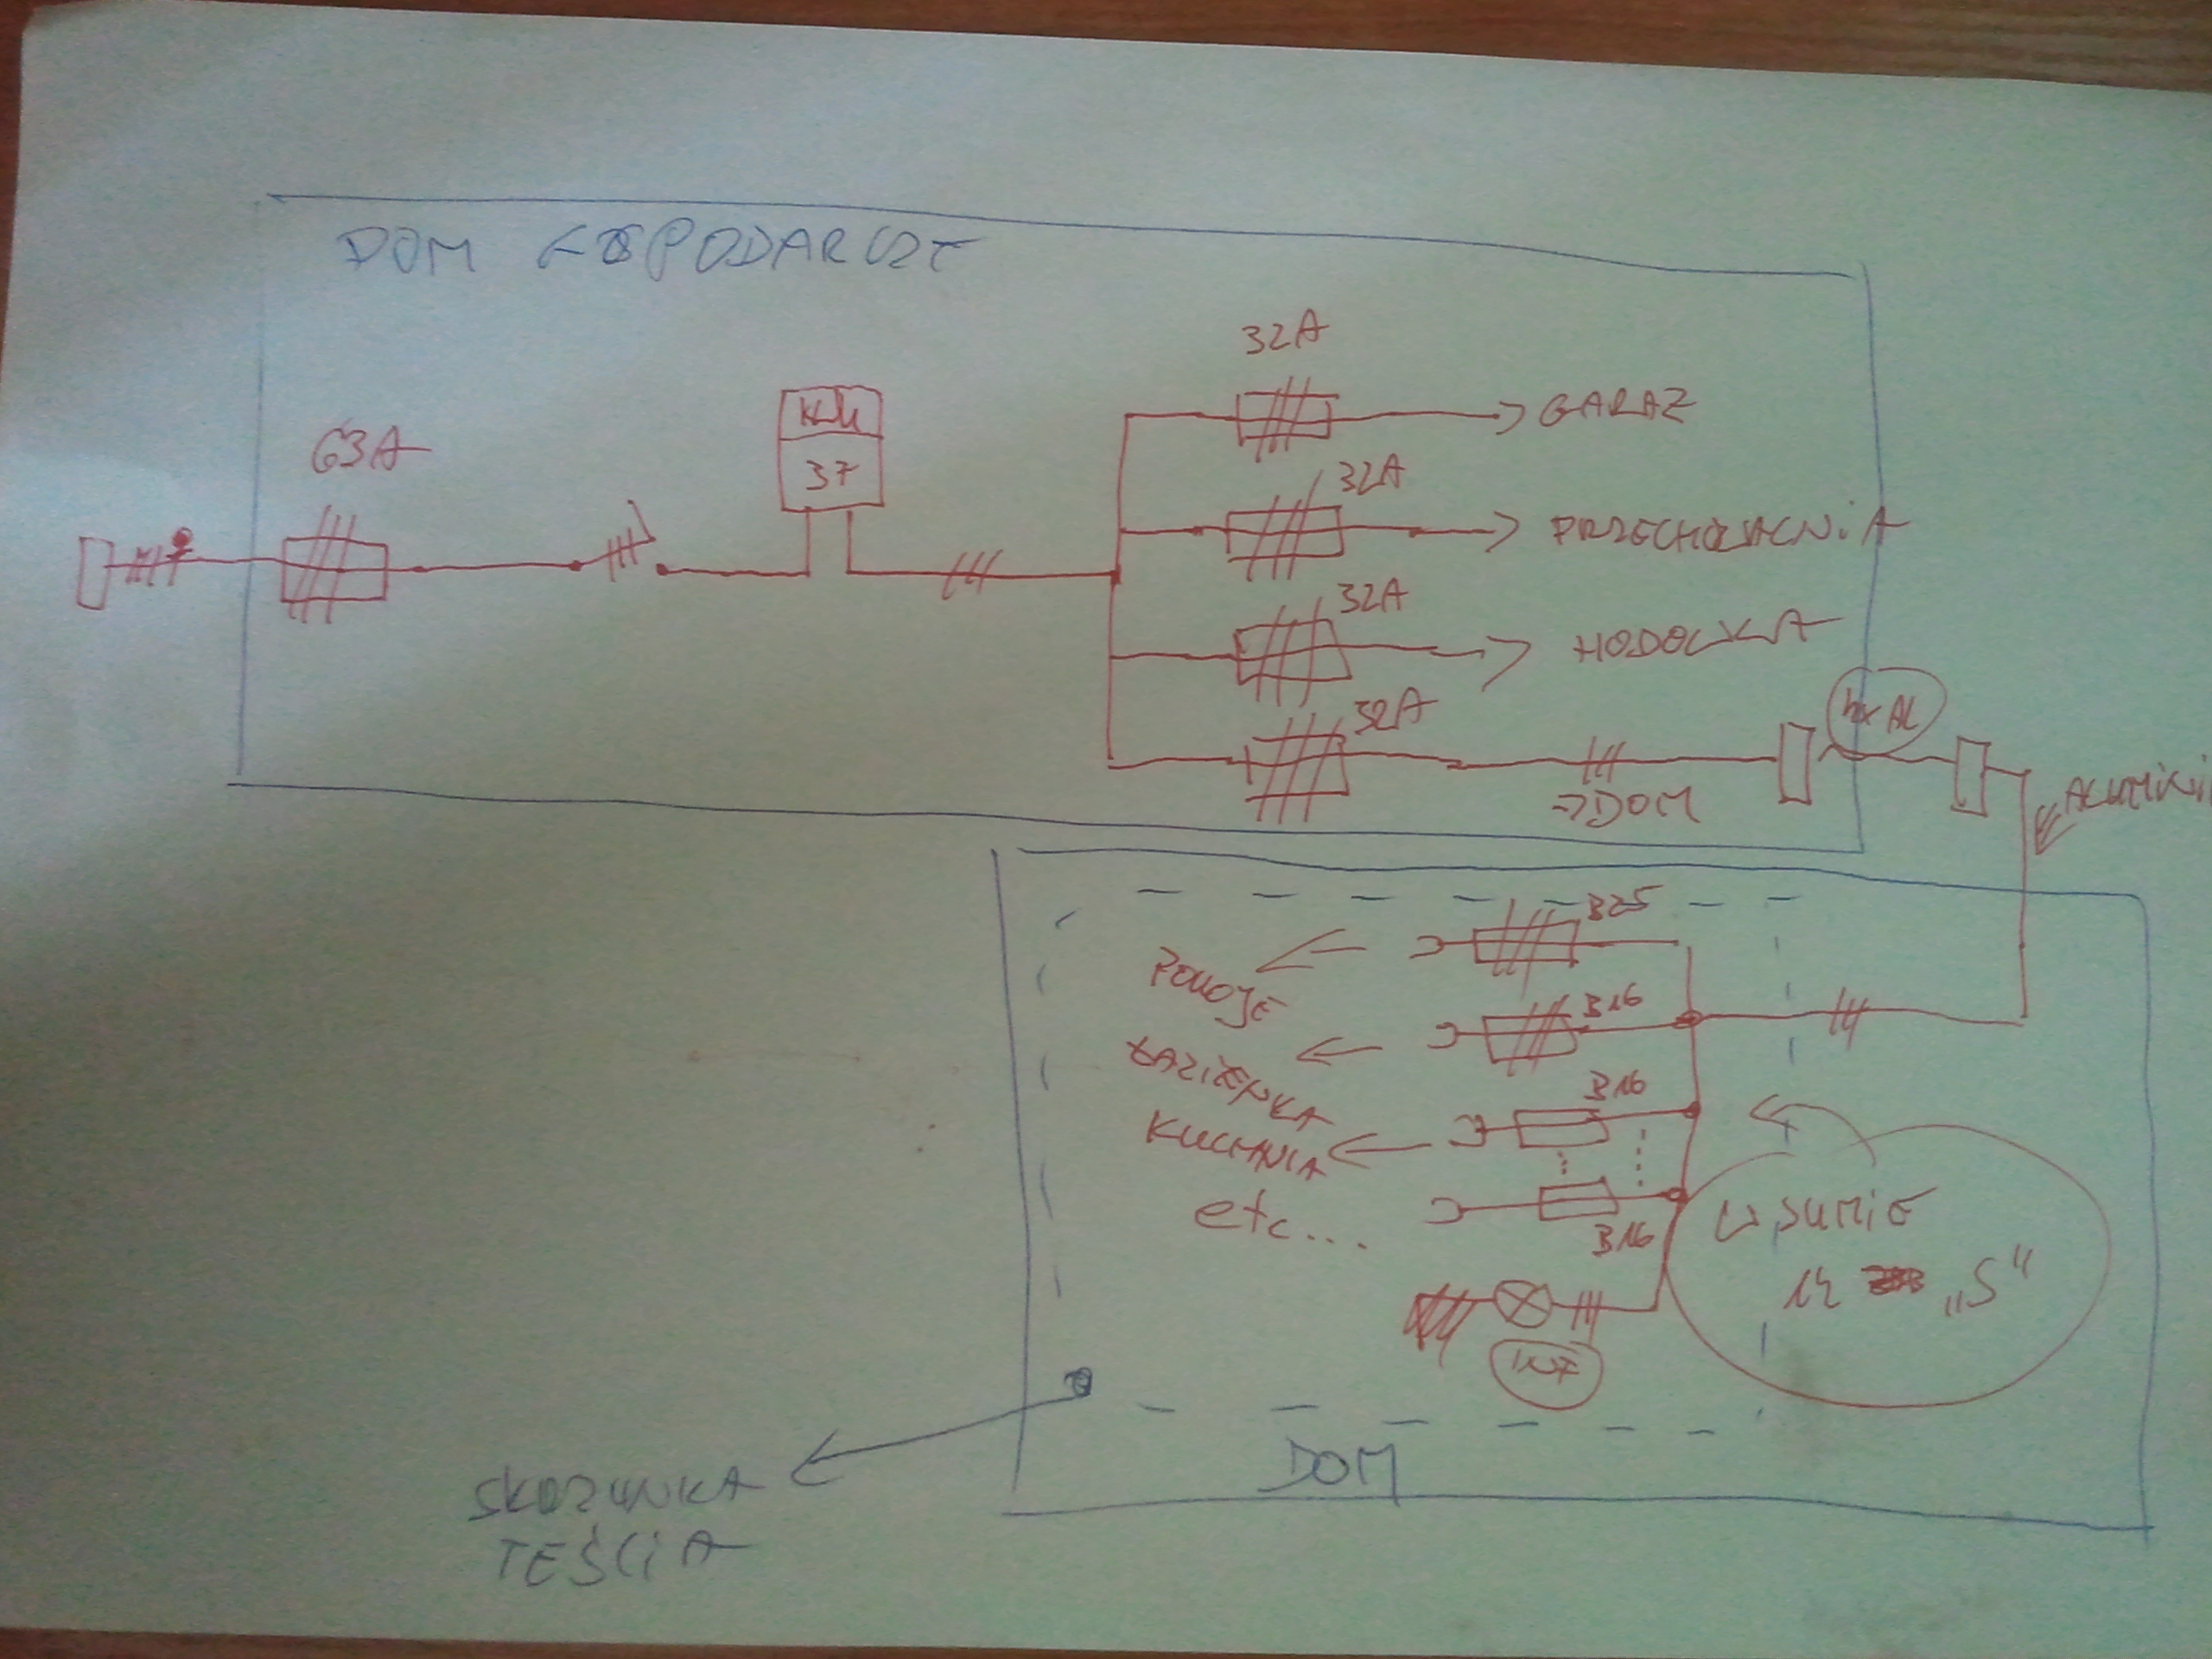 DOM GOSPODARCZE
32A
GARAZ
63A
kWh
37
32A
PRZECHOWALNiA
32A
HODOWLA
32A
4x AL
→DOM
ALUMiNi
B25
POKOJE
B16
ŁAZIENKA
B16
KUCHNIA
etc...
B16
W SUMIE
12 „S"
DOM
SKRZYNKA
TEŚCiA